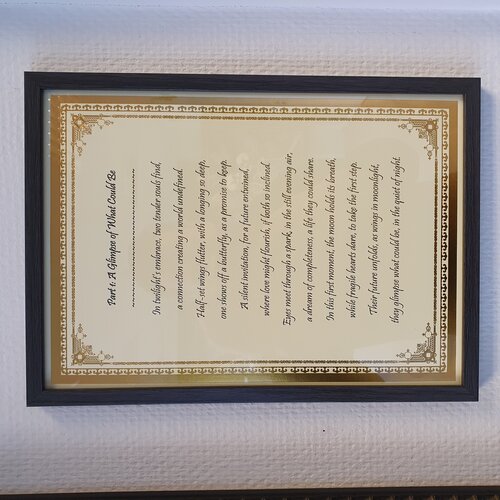 Part 1: A Glimpse of What Could Be
In twilight's embrace, two tender souls find,
a connection creating a world undefined.
Half-set wings flutter, with a longing so deep,
one shows off a butterfly, as a promise to keep.
A silent invitation, for a future entwined,
where love might flourish, if both so inclined.
Eyes meet through a spark, in the still evening air,
a dream of completeness, a life they could share.
In this first moment, the moon holds its breath,
while fragile hearts dare, to take the first step.
Their future unfolds, as wings in moonlight,
they glimpse what could be, in the quiet of night.